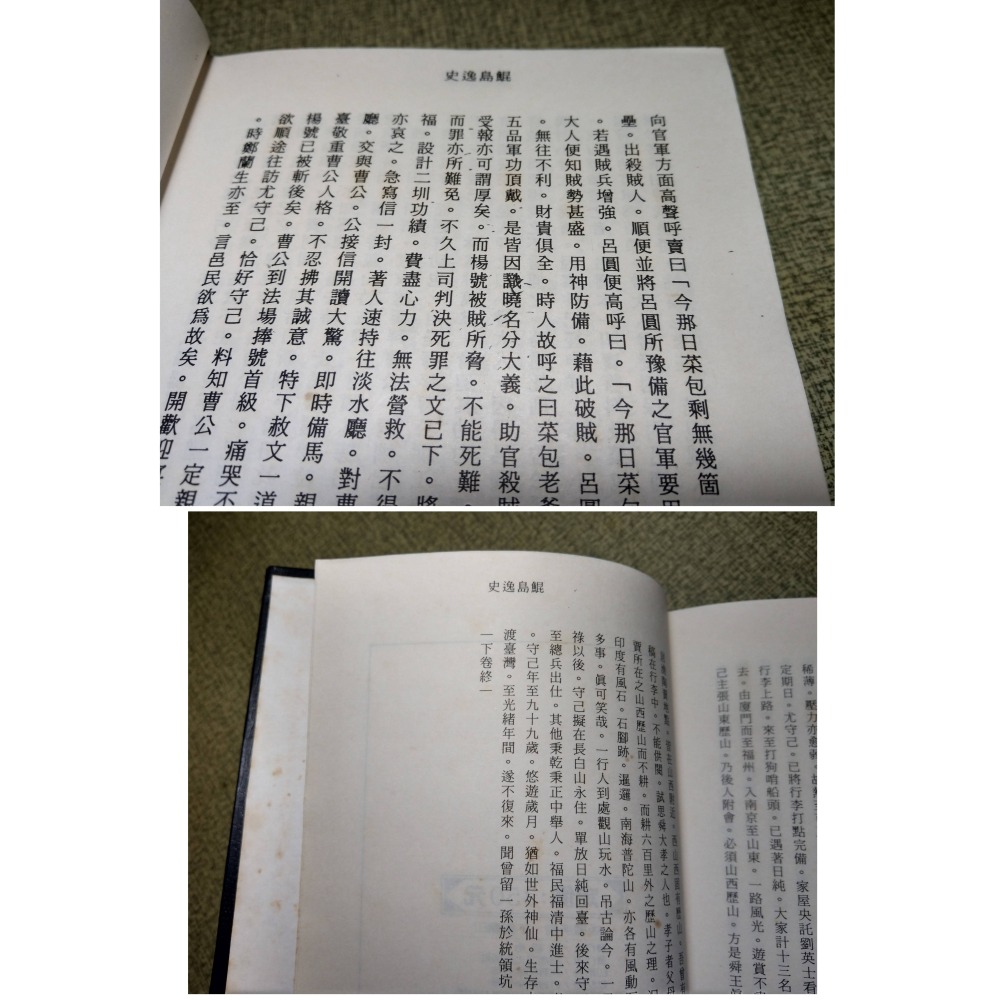 史逸島鯤
向官軍方面高聲呼賣曰「今那日菜包剩無幾箇
壘。出殺賊人。順便並將呂圓所豫備之官軍要用
。若遇賊兵增強。呂圓便高呼曰。「今那日菜包
大人便知賊勢甚盛。用神防備。藉此破賊。呂圓
。無往不利。財貴俱全。時人故呼之曰菜包老爹
五品軍功頂戴。是皆因識曉名分大義。助官殺賊
受報亦可謂厚矣。而楊號被賊所脅。不能死難。
而罪亦所難免。不久上司判決死罪之文已下。將
福。設計二圳功績。費盡心力。無法營救。不得
亦哀之。急寫信一封。著人速持往淡水廳。對曹
廳。交與曹公。公接信開讀大驚。即時備馬。親
臺敬重曹公人格。不忍拂其誠意。特下赦文一道
楊號已被斬後矣。曹公到法場捧號首級。痛哭不
欲順途往訪尤守己。恰好守己。料知曹公一定親
。時鄭蘭生亦至。言邑民欲爲故矣。開歡迎
史逸島鯤
稿在行李中。不能供閱。試思舜大孝之人也。孝子者父母
賣所在之山西歷山而不耕。而耕六百里外之歷山之理。
印度有風石。石腳跡。暹邏。南海普陀山。亦各有風動
多事。眞可笑哉。一行人到處觀山玩水。吊古論今。一
祿以後。守己擬在長白山永住。單放日純回臺。後來守
至總兵出仕。其他秉乾秉正中舉人。福民福清中進士。
。守己年至九十九歲。悠遊歲月。猶如世外神仙。生存
渡臺灣。至光緒年間。遂不復來。聞曾留一孫於統領坑
—下卷終—
稀薄。壓力亦
定期日。尤守己。已將行李打點完備。家屋央託劉英士看
行李上路。來至打狗哨船頭。已遇著日純。大家計十三名
去。由廈門而至福州。入南京至山東。一路風光。遊賞不
己主張山東歷山。乃後人附會。必須山西歷山。方是舜王